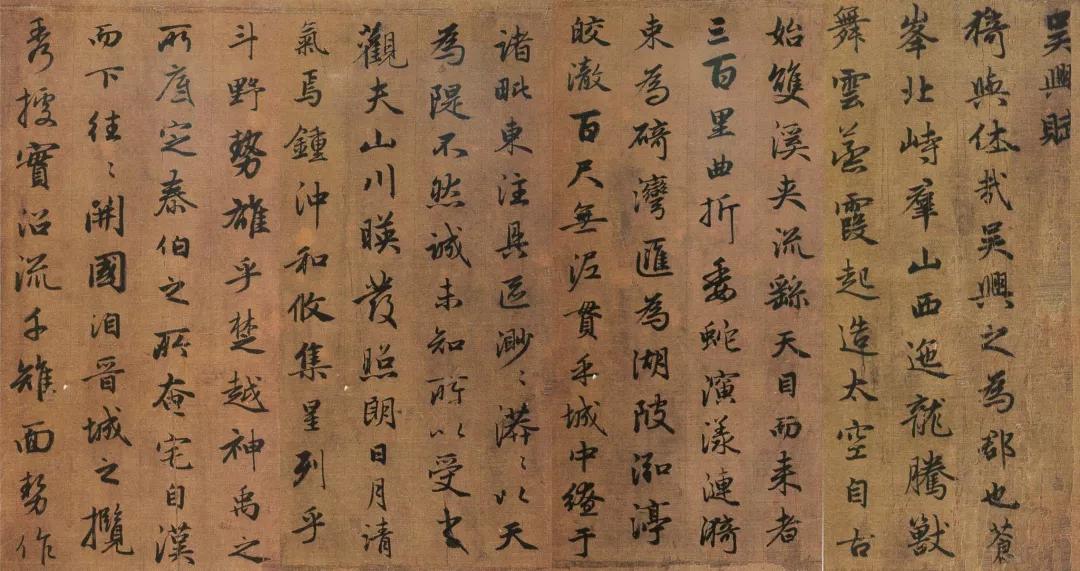 吳興賦
猗與休哉吳興之為郡也蒼
峯北峙羣山西迤龍騰獸
舞雲蒸霞起造太空自古
始雙溪夾流繇天目而来者
三百里曲折委蛇演漾漣漪
束為碕灣匯為湖陂泓渟
皎澈百尺無泥貫乎城中繚于
諸毗東注具區渺〻漭〻以天
為隄不然誠未知所以受之
觀夫山川暎發照朗日月清
氣焉鍾沖和攸集星列乎
斗野勢雄乎楚越神禹之
所底定泰伯之所奄宅自漢
而下往〻開國洎晉城之攬
秀據實沿流千雉面勢作